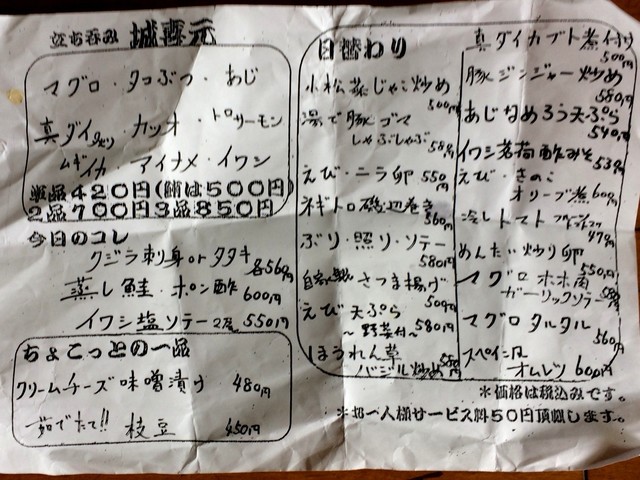 立ち呑み 城喜元
マグロ・タコぶつ・あじ
真ダイ・カツオ・トロサーモン
ムギイカ アイナメ・イワシ
単品420円(鮪は500円)
2品700円3品850円
今日のコレ
クジラ刺身orタタキ 各560円
蒸し鮭・ポン酢 600円
イワシ塩ソテー2尾 550円
ちょこっとの一品
クリームチーズ味噌漬け 480円
茹でたて!! 枝豆 450円
日替わり
小松菜じゃこ炒め 500円
湯で豚ゴマ
しゃぶしゃぶ 580円
えび・ニラ卵 550円
ネギトロ磯辺巻き 560円
ぶり・照り・ソテー 580円
自家製さつま揚げ 500円
えび天ぷら
～野菜付～580円
ほうれん草
バジル炒め
真ダイカブト煮付け 500円
豚ジンジャー炒め 580円
あじなめろう天ぷら 540円
イワシ茗荷酢みそ 539円
えび・きのこ
オリーブ煮 600円
冷しトマト 479円
めんたい炒り卵 550円
マグロホホ肉
ガーリックソテー
マグロタルタル 560円
スペイン風
オムレツ 600円
※価格は税込みです。
※お一人様サービス料50円頂戴します。